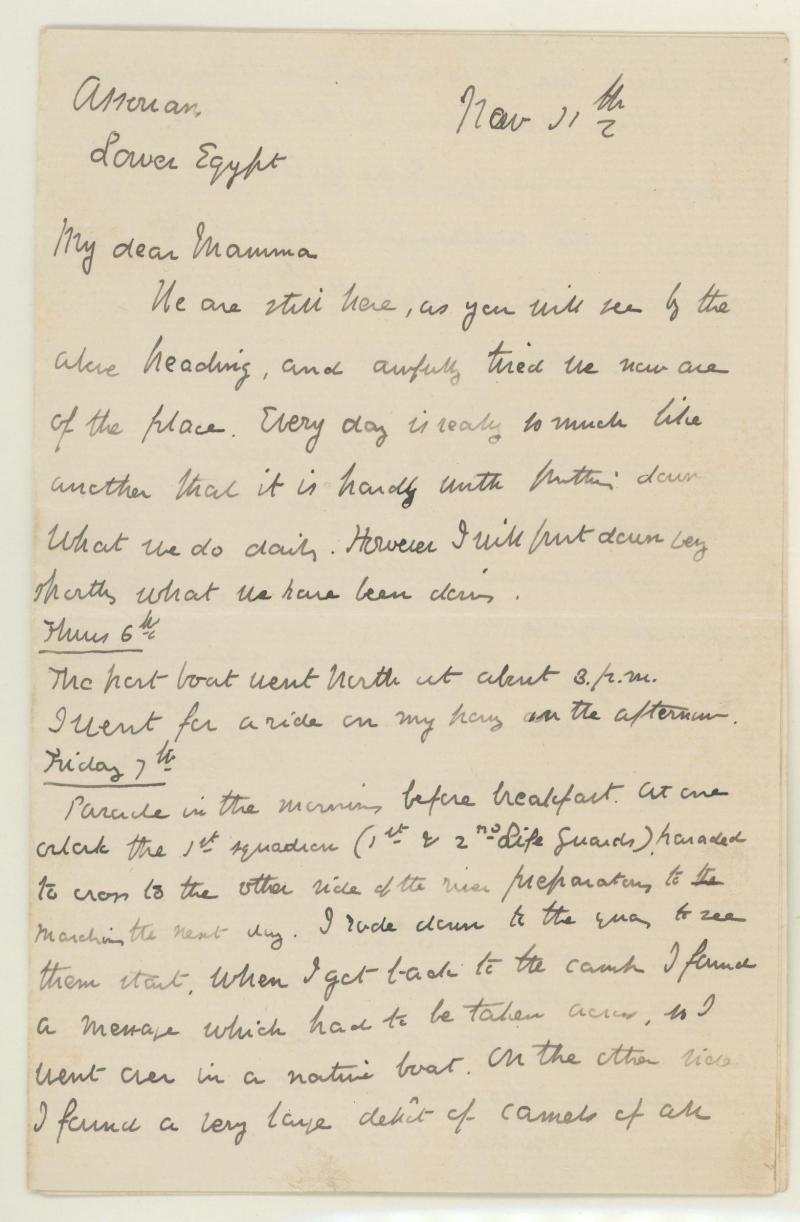 Assouan
Nov 11th
Lower Egypt
My dear Mamma
We are still here, as you will see by the
above heading, and awfully tired we now are
of the place. Every day is really so much like
another that it is hardly worth putting down
what we do daily. However I will put down very
shortly what we have been doing.
Thurs 6th
The post boat went North at about 3.p.m.
I went for a ride on my pony in the afternoon.
Friday 7th
Parade in the morning before breakfast. At one
oclock the 1st squadron (1st & 2nd Life Guards) paraded
to cross to the other side of the river preparatory to the
marching the next day. I rode down to the quay to see
them start. When I got back to the camp I found
a message which had to be taken across, so I
went over in a native boat. On the other side
I found a very large depôt of camels of all